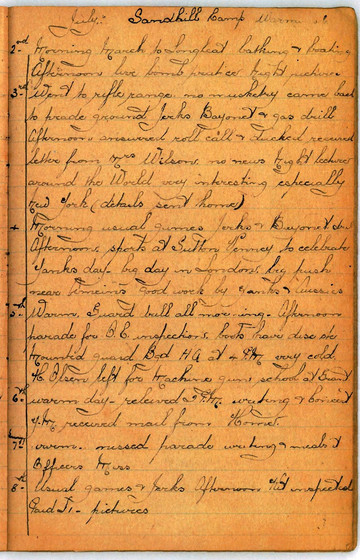 July. Sandhill Camp Warminster
2nd Morning March to Longleat bathing & boating
Afternoon live bomb practice Night pictures
3rd Went to rifle range. no musketry came back
to parade ground Jerks Bayonet & gas drill
Afternoon answered roll call & ducked received
letter from Mrs Wilson. no news Night lecture
around the World very interesting especially
New York (details sent home)
4 Morning usual games Jerks & Bayonet
Afternoon, sports at Sutton Veney to celebrate
Yanks day. big day in London, big push
near Amiens good work by Yanks & Aussies
5th Warm. Guard bull all morning. Afternoon
parade for O.C. inspection. boots hair
Mounted guard Bgd HQ at 4 PM very cold
H. Olsen left for Machine gun school at
6th warm day - relieved 5 PM. writing & Concert
received mail from Home.
7th warm. missed parade writing & mess
Officers Mess
8th Usual games & Jerks Afternoon Kit inspected
Paid - pictures